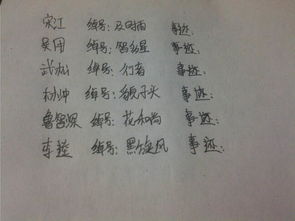 宋江 绰号:及时雨 事迹:
吴用 绰号:智多星 事迹:
武松 绰号:行者 事迹:
林冲 绰号:豹子头 事迹:
鲁智深 绰号:花和尚 事迹:
李逵 绰号:黑旋风 事迹: